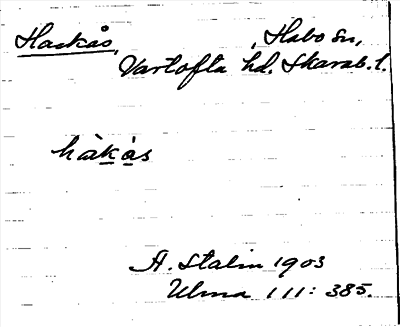 Haskås, Habo sn,
Vartofta hd. Skarab. l.
hàkás
A. Stalin 1903
Ulma 111: 385.